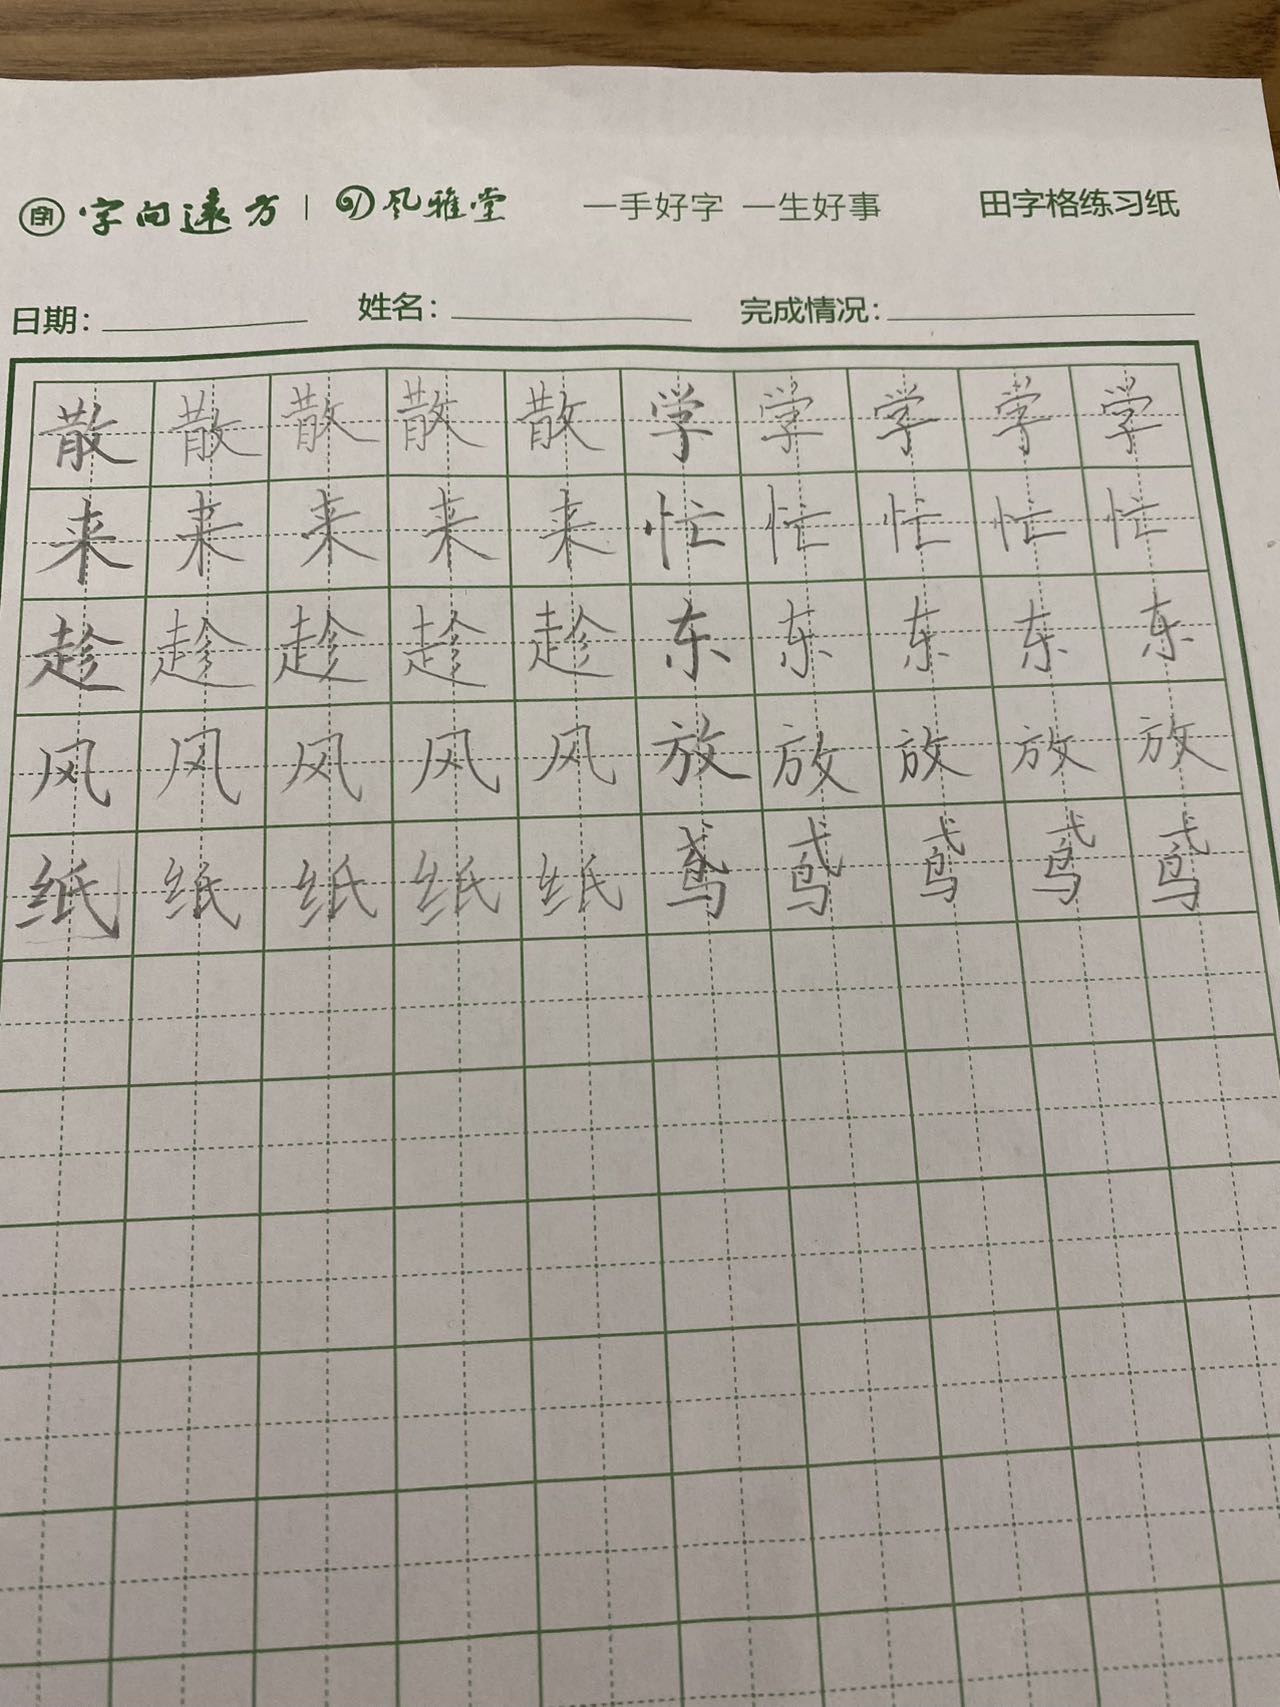 字向远方 | 风雅堂 一手好字 一生好事 田字格练习纸
日期： 姓名： 完成情况：
散散散散散学学学学学
来来来来来忙忙忙忙忙
趁趁趁趁趁东东东东东
风风风风风放放放放放
纸纸纸纸纸鸢鸢鸢鸢鸢